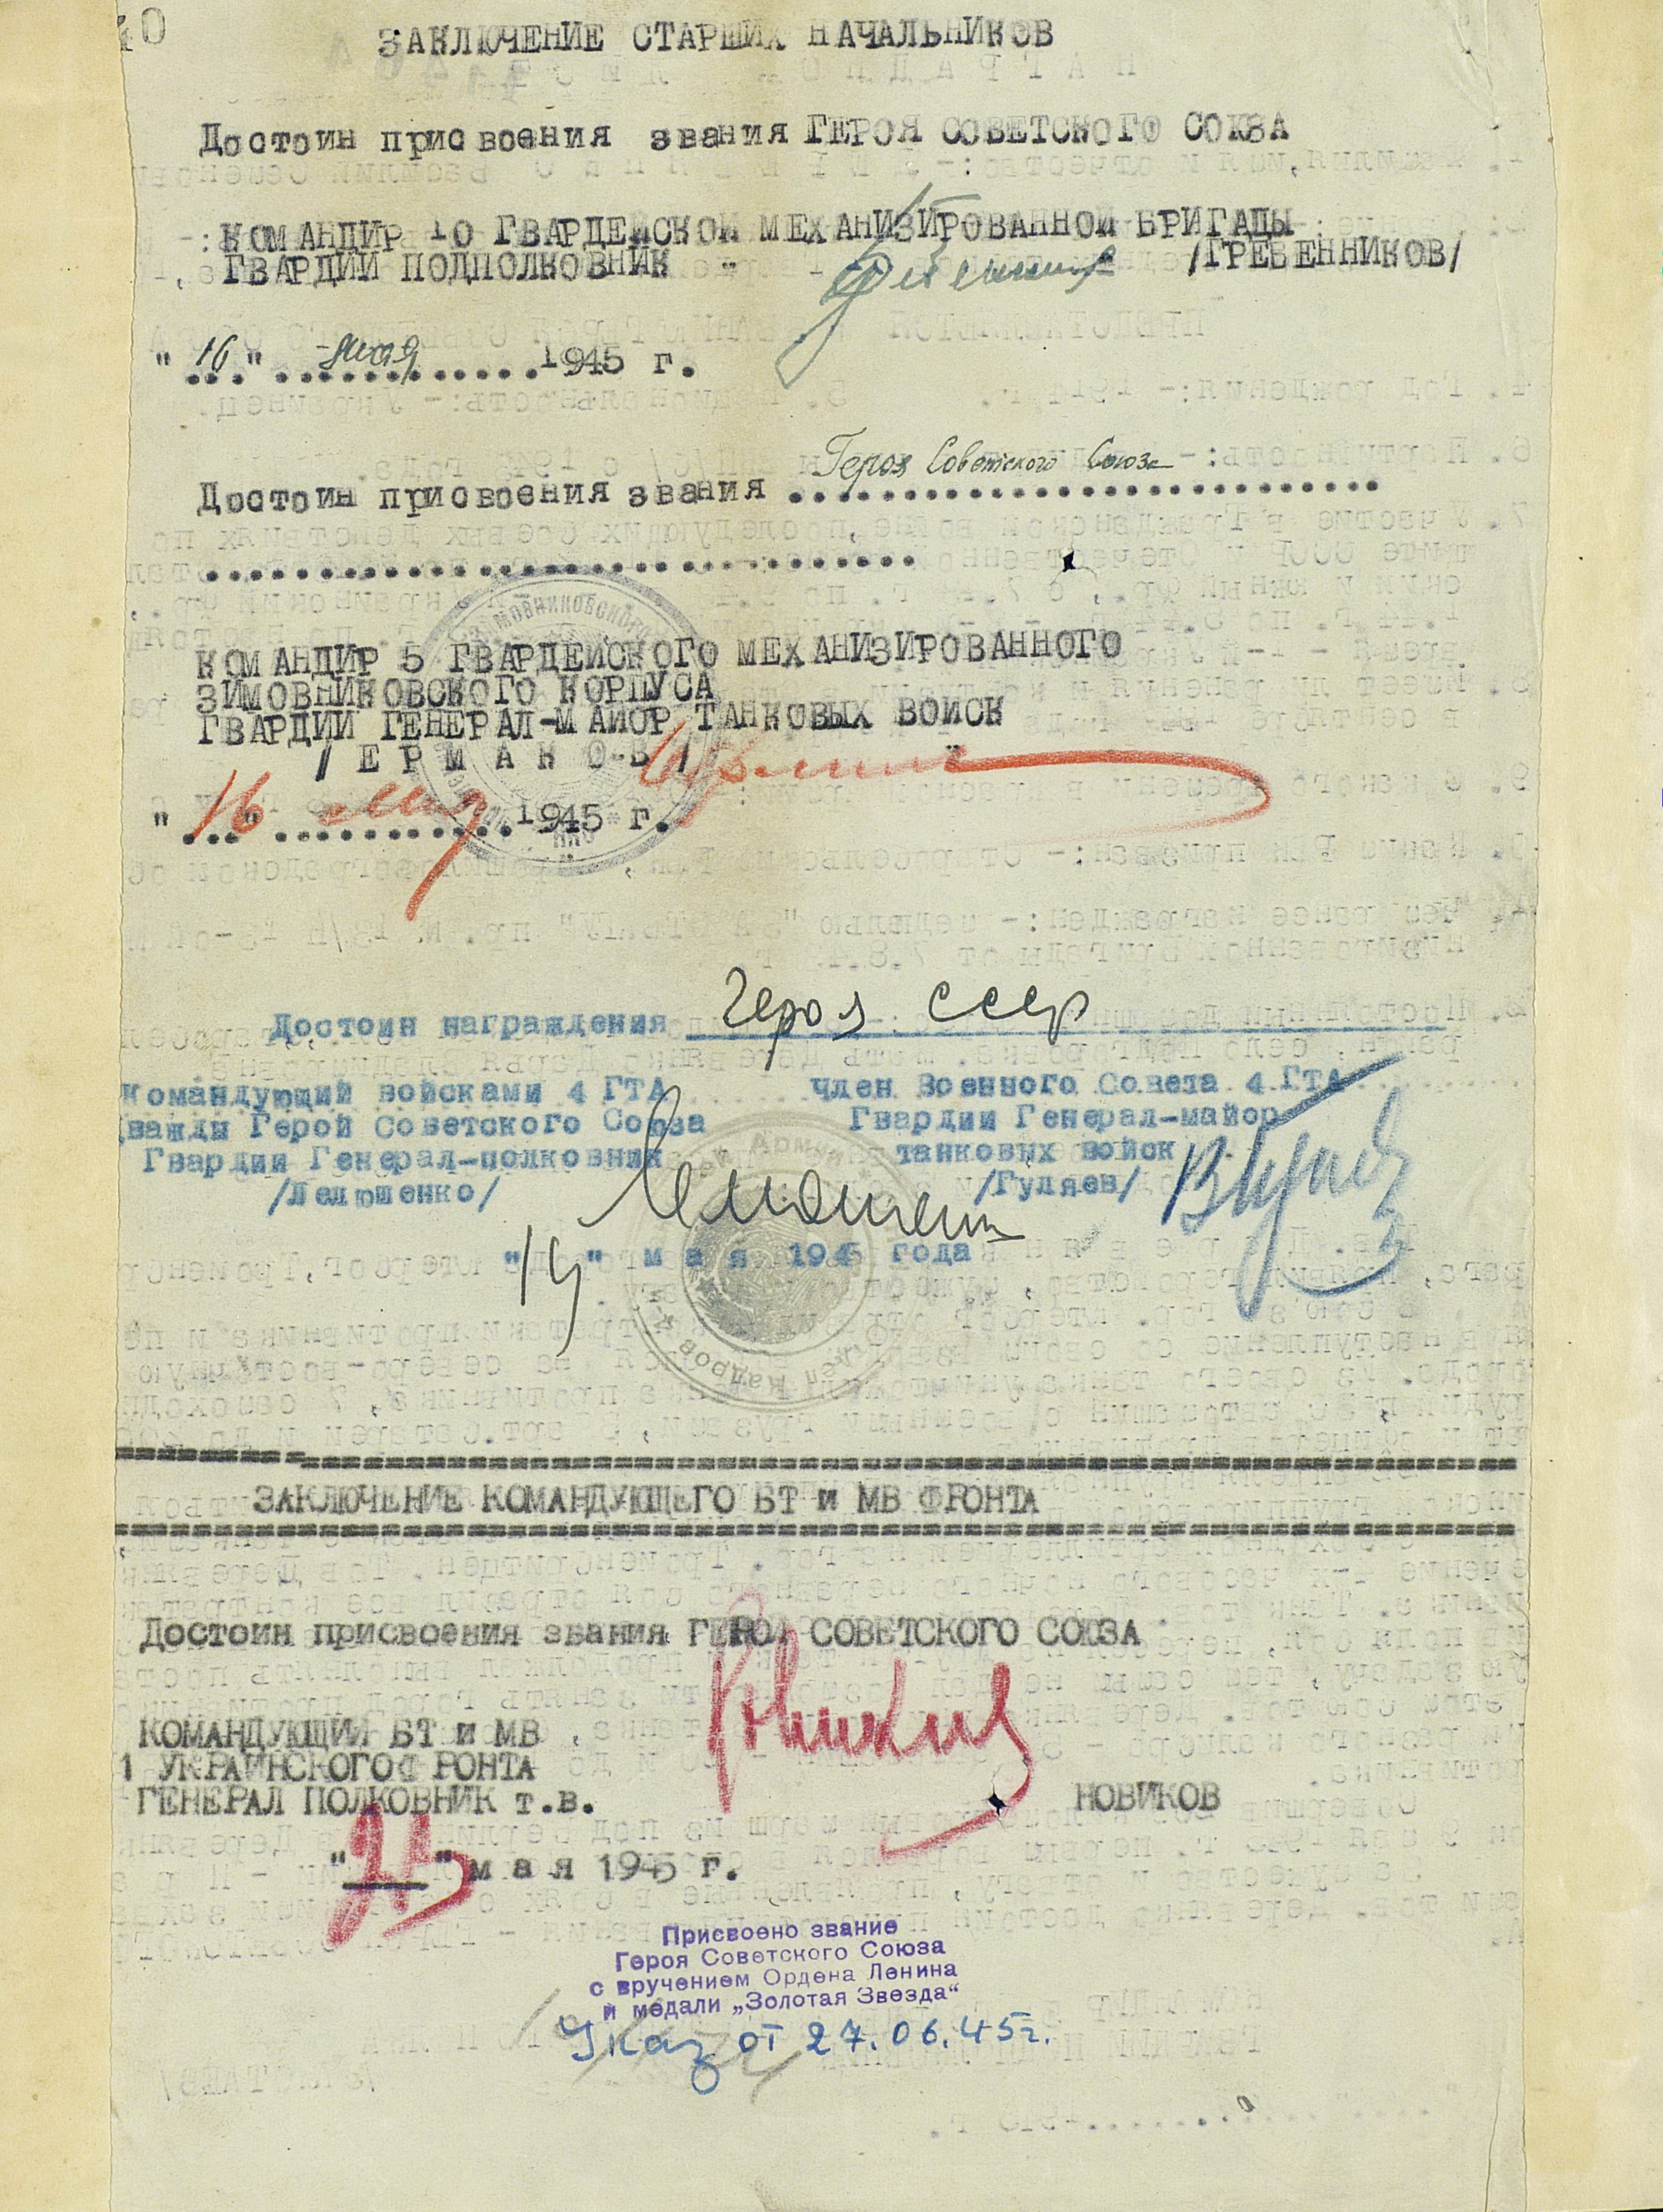 40
ЗАКЛЮЧЕНИЕ СТАРШИХ НАЧАЛЬНИКОВ
Достоин присвоения звания ГЕРОЯ СОВЕТСКОГО СОЮЗА
КОМАНДИР 10 ГВАРДЕЙСКОЙ МЕХАНИЗИРОВАННОЙ БРИГАДЫ
ГВАРДИИ ПОДПОЛКОВНИК /ГРЕБЕННИКОВ/
"16" мая 1945 г.
Достоин присвоения звания Героя Советского Союза
КОМАНДИР 5 ГВАРДЕЙСКОГО МЕХАНИЗИРОВАННОГО
ЗИМОВНИКОВСКОГО КОРПУСА
ГВАРДИИ ГЕНЕРАЛ-МАЙОР ТАНКОВЫХ ВОЙСК
/ЕРМАКОВ/
"16" мая 1945 г.
Достоин награждения Героя СССР
Командующий войсками 4 ГТА
Дважды Герой Советского Союза
Гвардии Генерал-полковник
/Лелюшенко/
Член Военного Совета 4 ГТА
Гвардии Генерал-майор
танковых войск
/Гуляев/
"19" мая 1945 года
ЗАКЛЮЧЕНИЕ КОМАНДУЮЩЕГО БТ и МВ ФРОНТА
Достоин присвоения звания ГЕРОЯ СОВЕТСКОГО СОЮЗА
КОМАНДУЮЩИЙ БТ и МВ
1 УКРАИНСКОГО ФРОНТА
ГЕНЕРАЛ ПОЛКОВНИК т.в. НОВИКОВ
мая 1945 г.
Присвоено звание
Героя Советского Союза
с вручением Ордена Ленина
и медали „Золотая Звезда"
Указ от 27.06.45г.